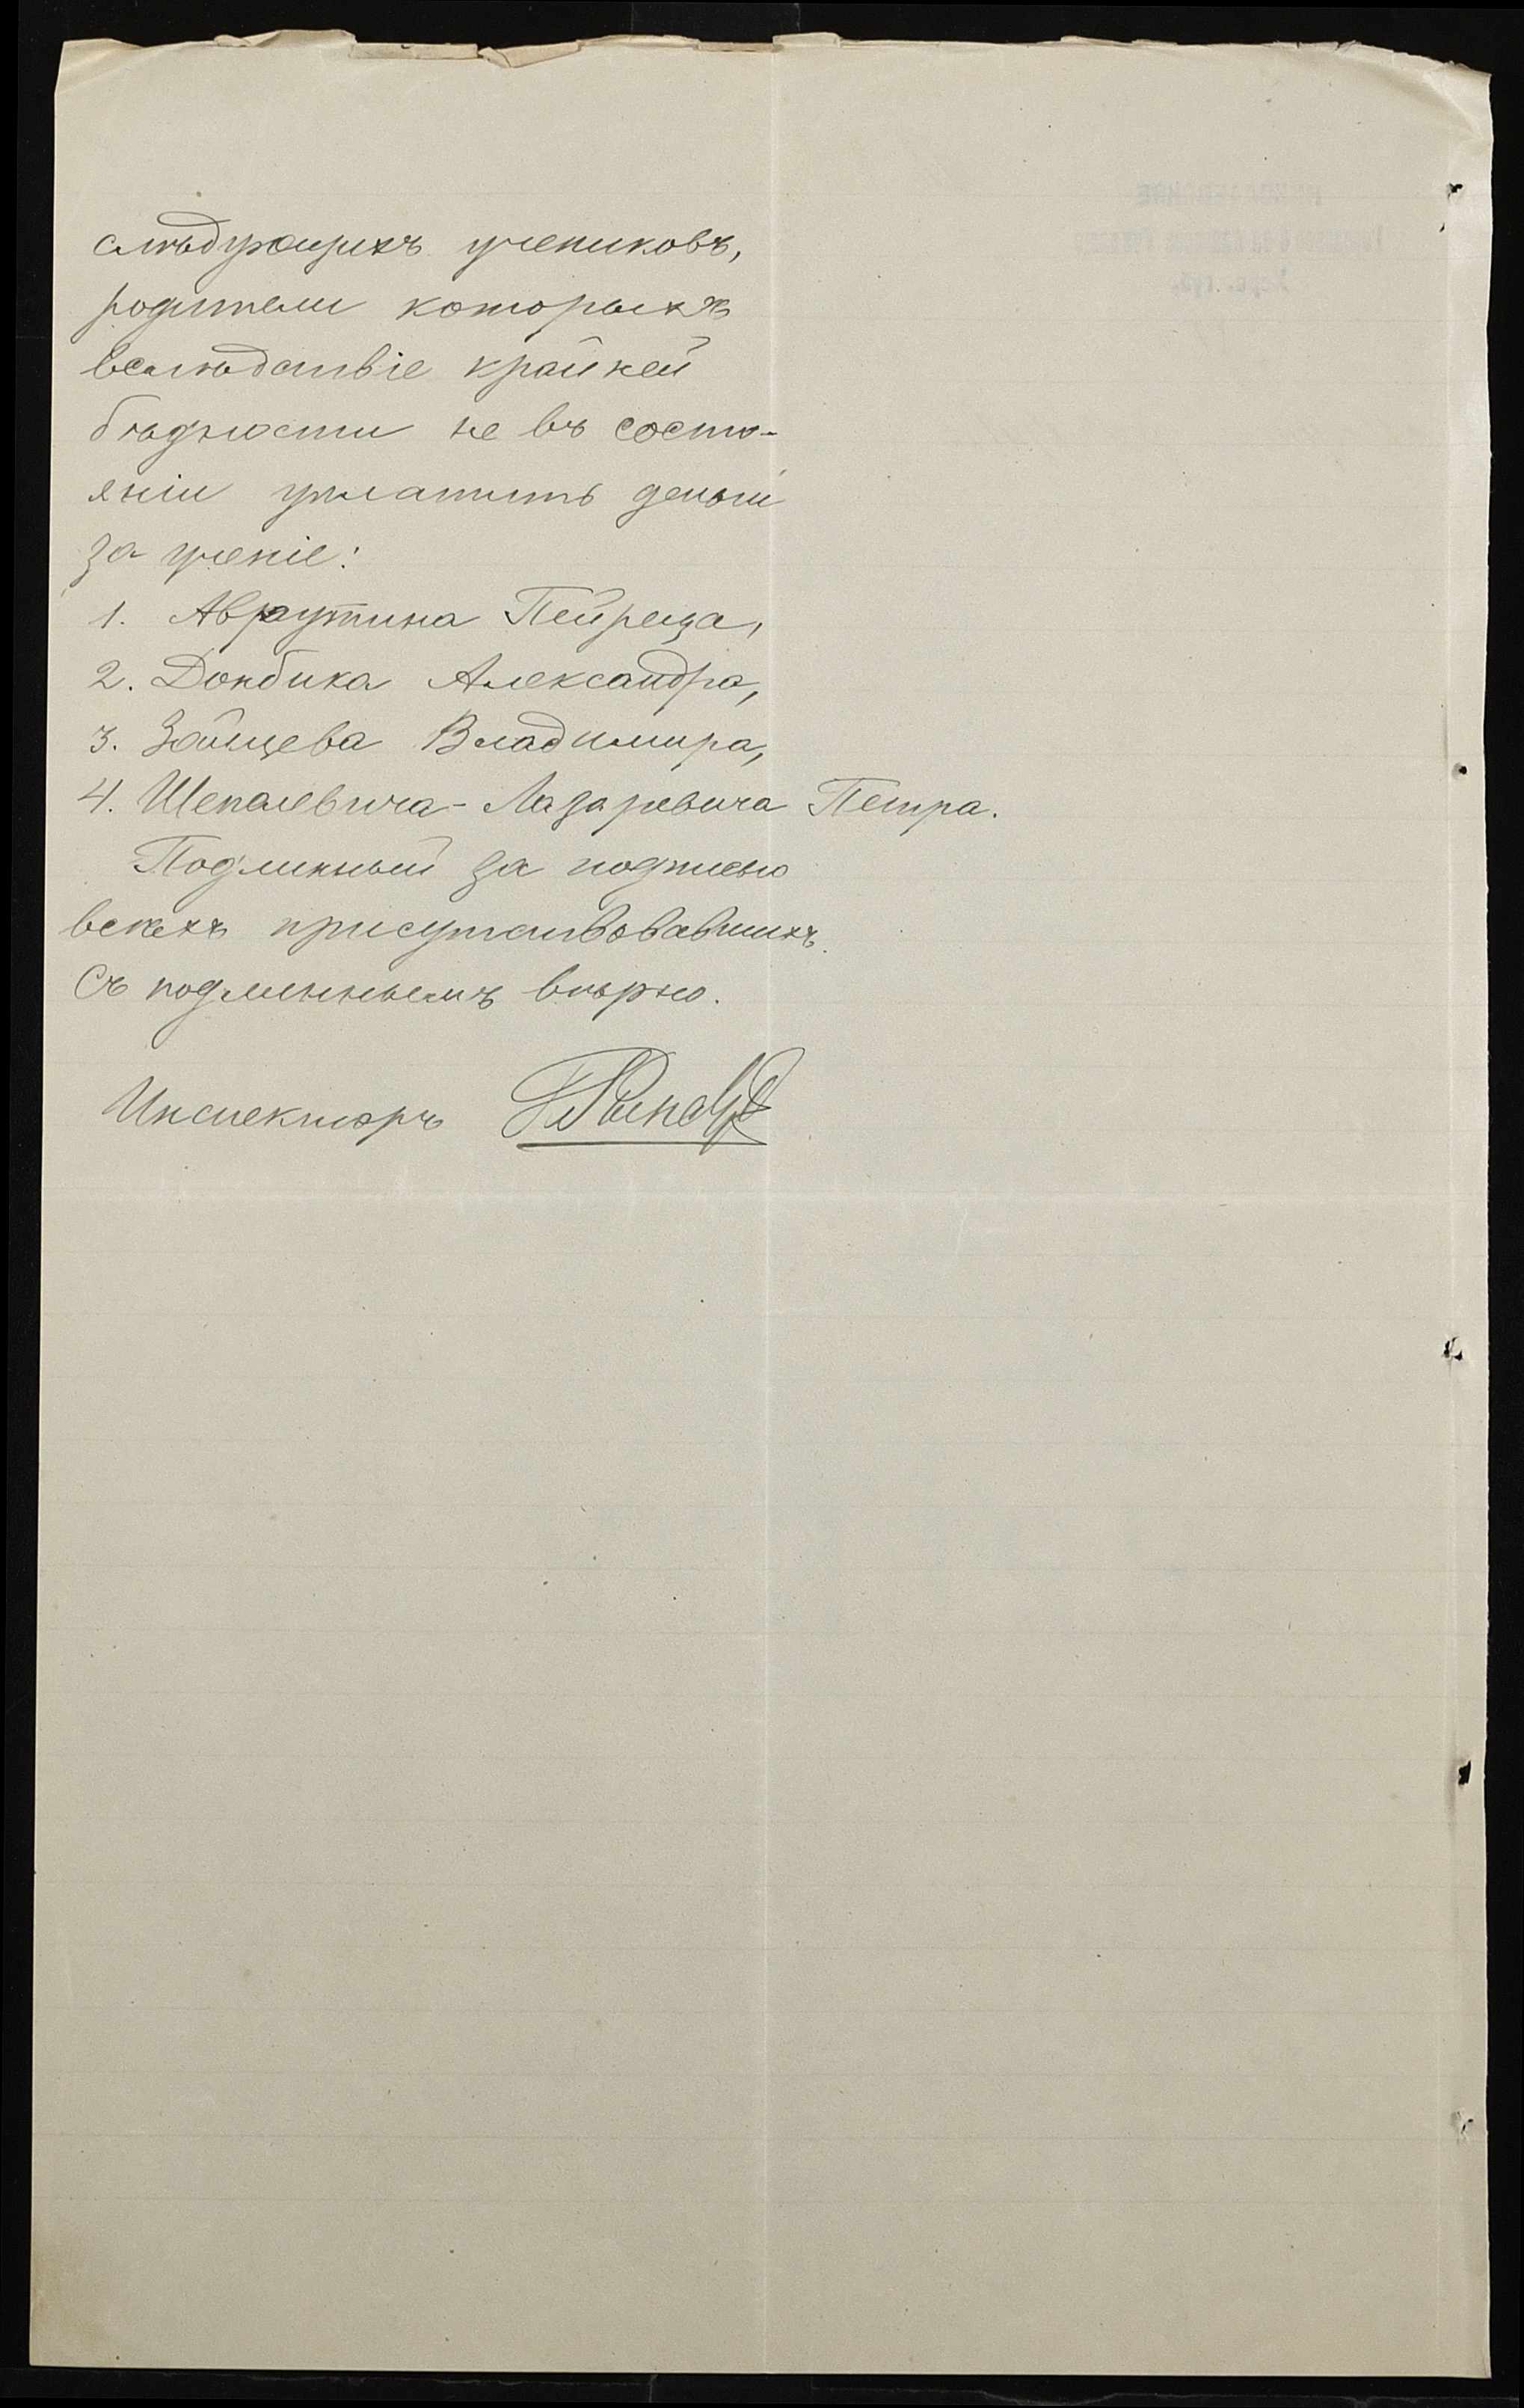 слѣдующихъ учениковъ,
родители которыхъ
вслѣдствіе крайней
бѣдности не въ состо-
яніи уплатить деньги
за ученіе:
1. Аврутина Пейреца,
2. Донбика Александра,
3. Зайцева Владимира,
4. Шепалевича-Лазаревича Петра.
Подлинный за подписью
всѣхъ присутствовавшихъ.
Съ подлиннымъ вѣрно.
Инспекторъ